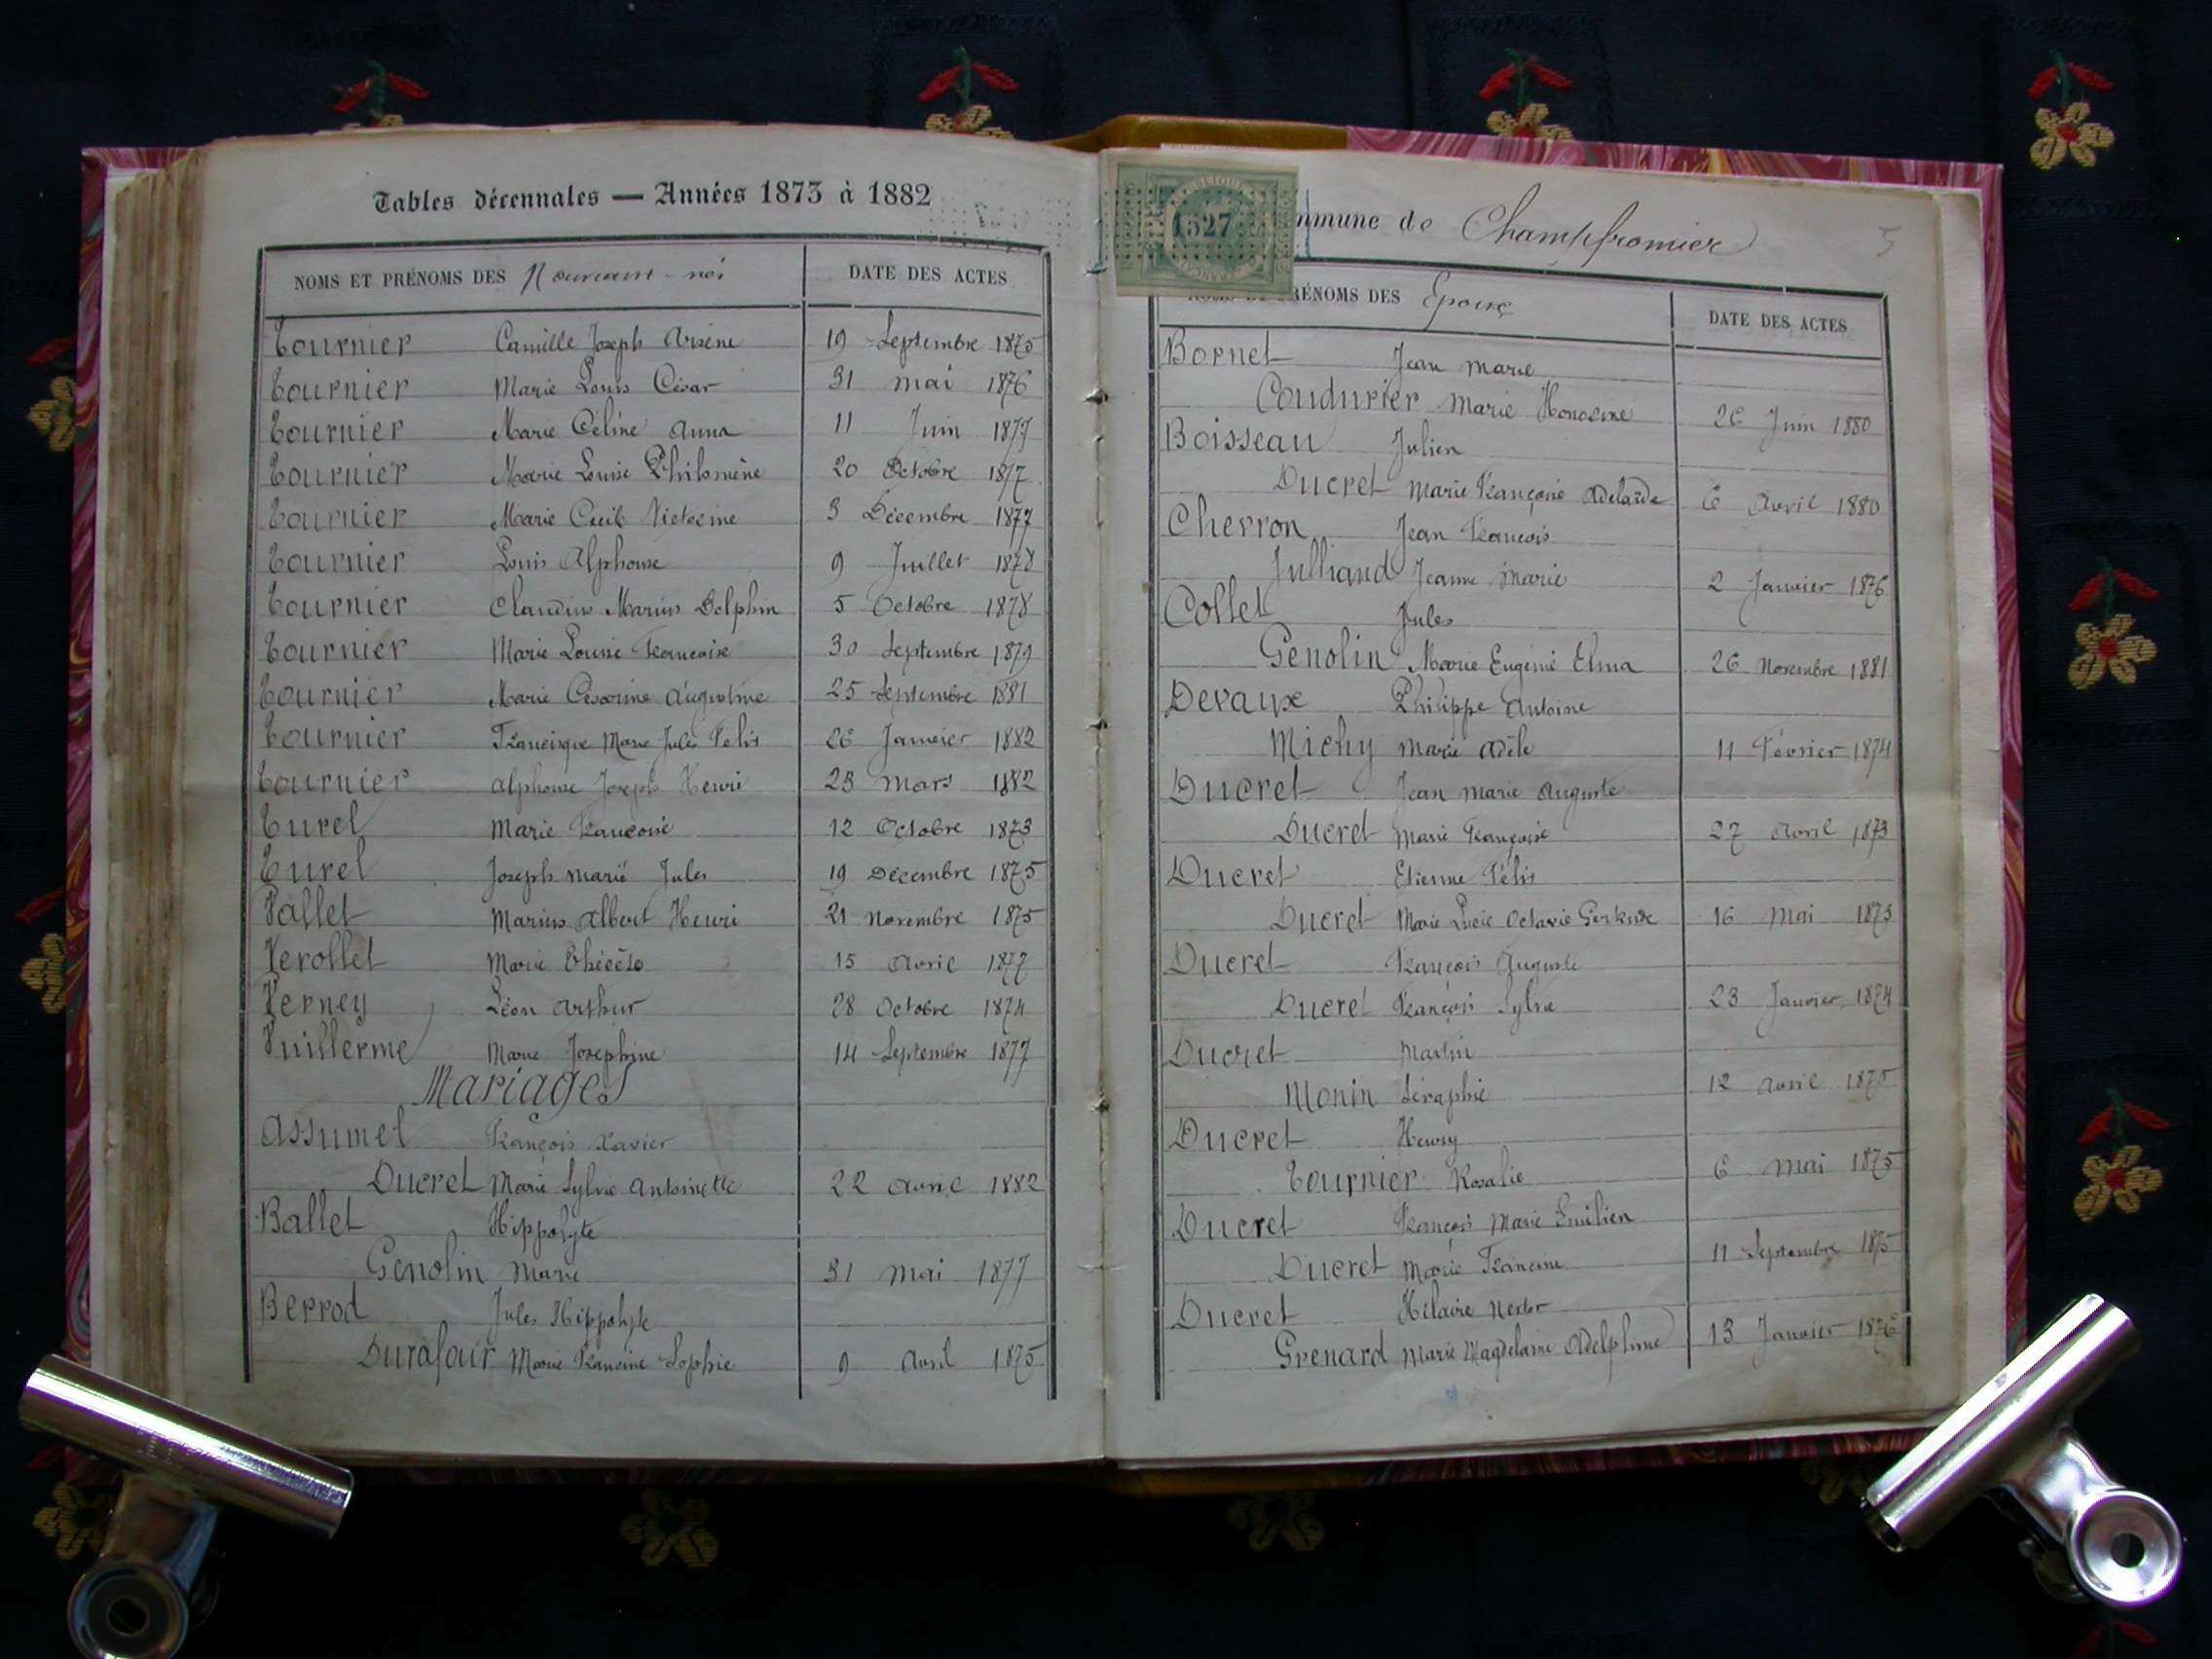 Tables décennales — Années 1873 à 1882
NOMS ET PRÉNOMS DES Nouveaux-nés DATE DES ACTES
Tournier Camille Joseph Arsène 19 Septembre 1875
Tournier Marie Louis César 31 mai 1876
Tournier Marie Céline Anna 11 Juin 1877
Tournier Marie Louise Philomène 20 Octobre 1877
Tournier Marie Cécile Victorine 3 Décembre 1877
Tournier Louis Alphonse 9 Juillet 1878
Tournier Claudius Marius Delphin 5 Octobre 1878
Tournier Marie Louise Françoise 30 Septembre 1879
Tournier Marie Césarine Augustine 25 Septembre 1881
Tournier Francisque Marie Jules Félix 26 Janvier 1882
Tournier Alphonse Joseph Henri 23 mars 1882
Turel Marie Françoise 12 Octobre 1873
Turel Joseph marie Jules 19 Décembre 1875
Vallet Marius Albert Henri 21 novembre 1875
Verollet Marie 15 avril 1877
Verney Léon Arthur 28 Octobre 1874
Vuillerme Marie Josephine 14 Septembre 1877
Mariages
Assumel François Xavier
Ducret Marie Sylvie Antoinette 22 avril 1882
Ballet Hippolyte
Genolin Marie 31 mai 1877
Berrod Jules Hippolyte
Durafour Marie Francine Sophie 9 avril 1875
1527
mmune de Champfromier
5
RÉNOMS DES Epoux DATE DES ACTES
Bornet Jean Marie
Coudurier Marie Honorine 26 Juin 1880
Boisseau Julien
Ducret Marie Françoise Adelaïde 6 avril 1880
Cherron Jean François
Julliand Jeanne Marie 2 Janvier 1876
Collet Jules
Genolin Marie Eugénie Elma 26 novembre 1881
Devaux Philippe Antoine
Michy Marie Adèle 11 Février 1874
Ducret Jean Marie Auguste
Ducret Marie Françoise 27 avril 1873
Ducret Etienne Félix
Ducret Marie Lucie Octavie Gertrude 16 mai 1873
Ducret François Auguste
Ducret Françoise Sylvie 23 Janvier 1874
Ducret Martin
Monin Séraphie 12 avril 1875
Ducret Henry
Tournier Rosalie 6 mai 1875
Ducret François Marie Emilien
Ducret Marie Francine 11 Septembre 1875
Ducret Hilaire Nestor
Grenard Marie Magdelaine Adelphine 13 Janvier 1876